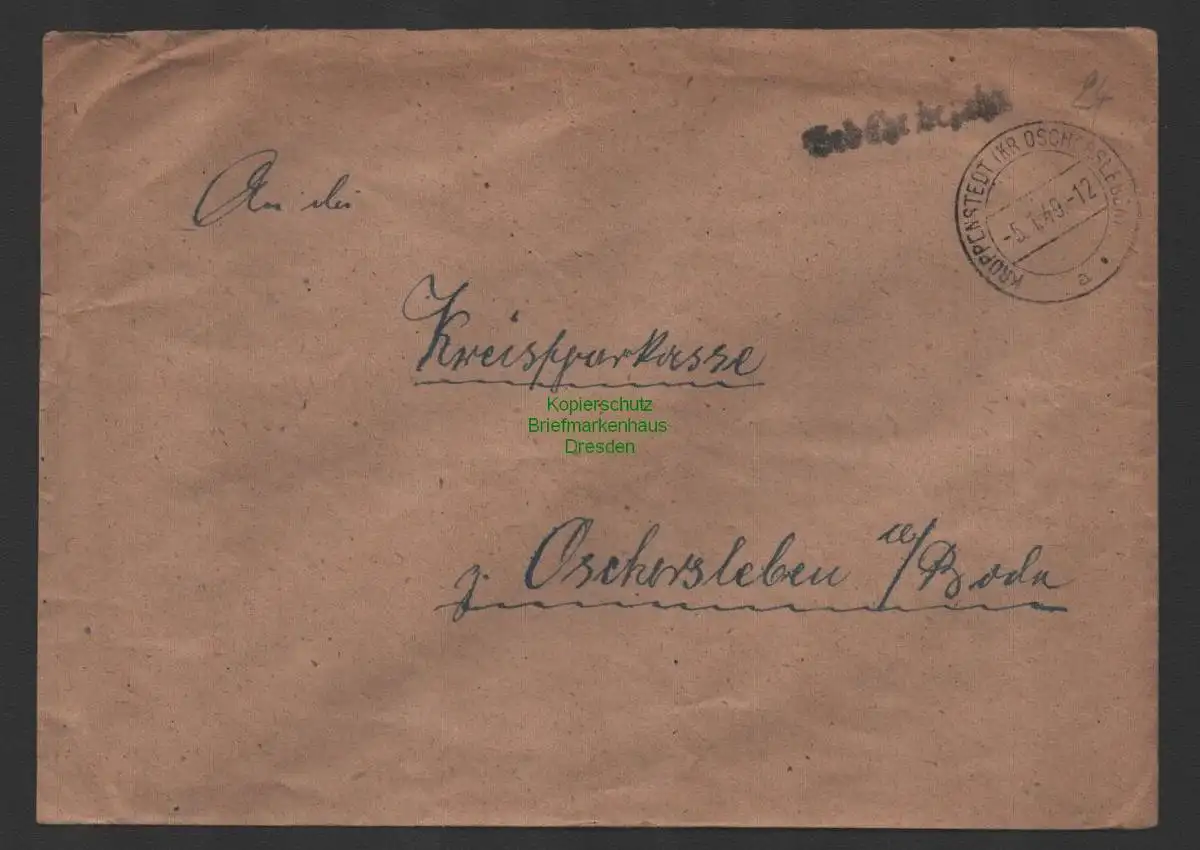 24
Gebühr bezahlt
KROPPENSTEDT (KR OSCHERSLEBEN)
-5.1.49.-12
a
An die
Kreissparkasse
Kopierschutz
Briefmarkenhaus
Dresden
z. Oschersleben a/Bode